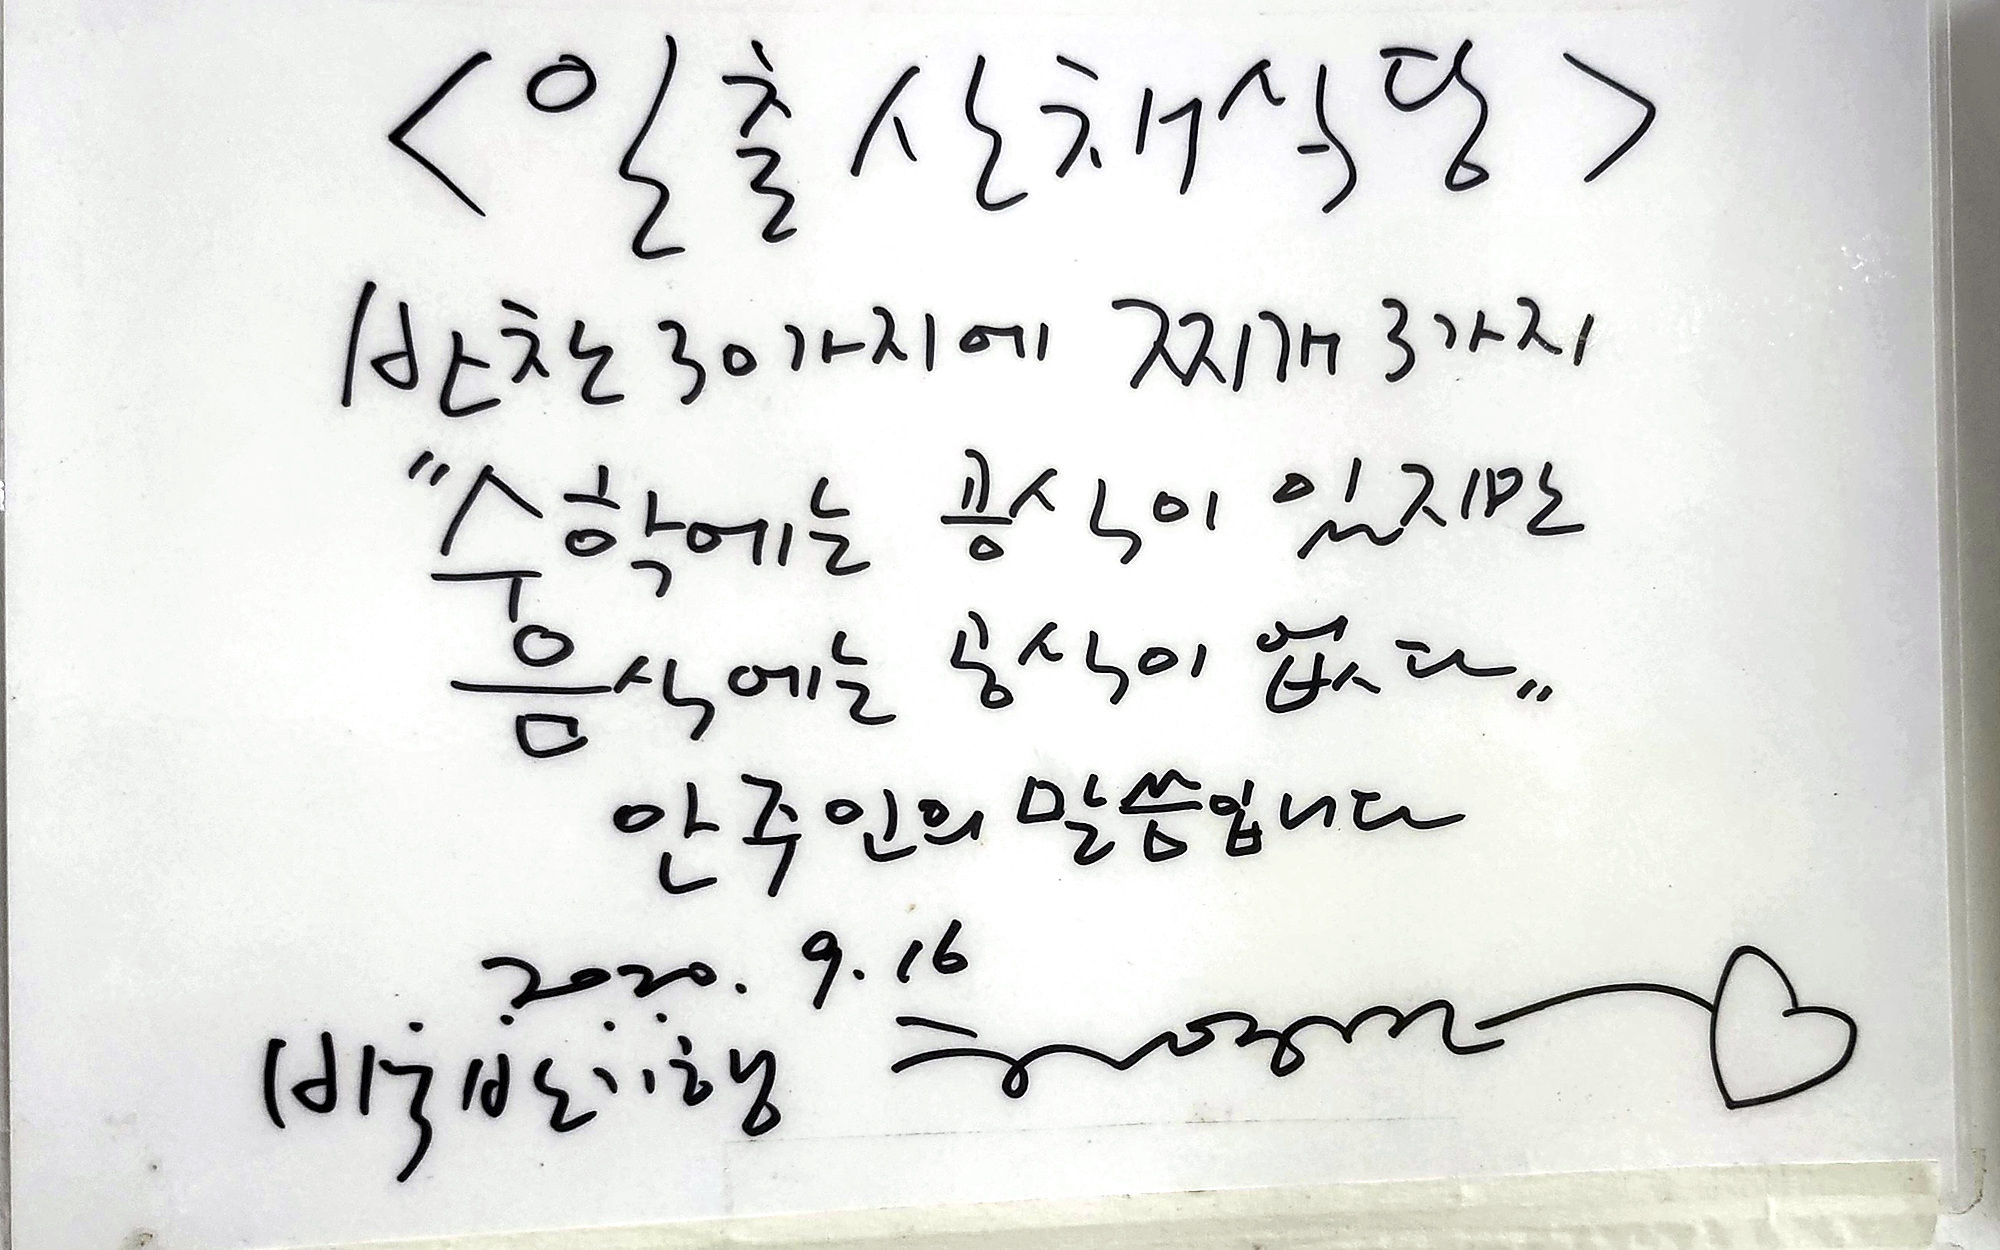 <일출산채식당>
반찬 30가지에 찌개 3가지
"수학에는 공식이 있지만
음식에는 공식이 없다"
안주인의 말씀입니다
2020. 9. 16
백반기행